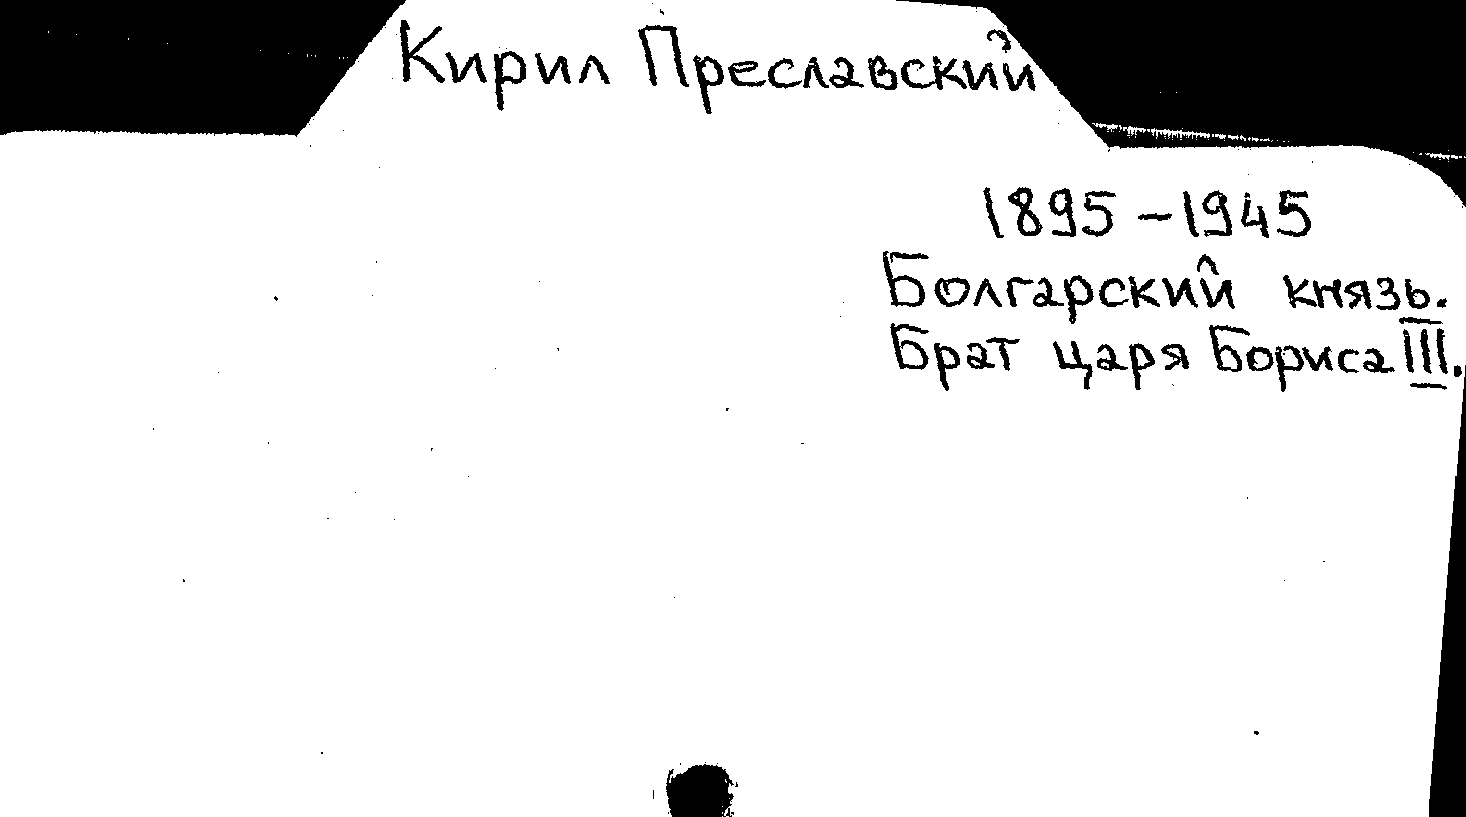 Кирил Преславский
1895-1945
Болгарский князь.
Брат царя Бориса III.